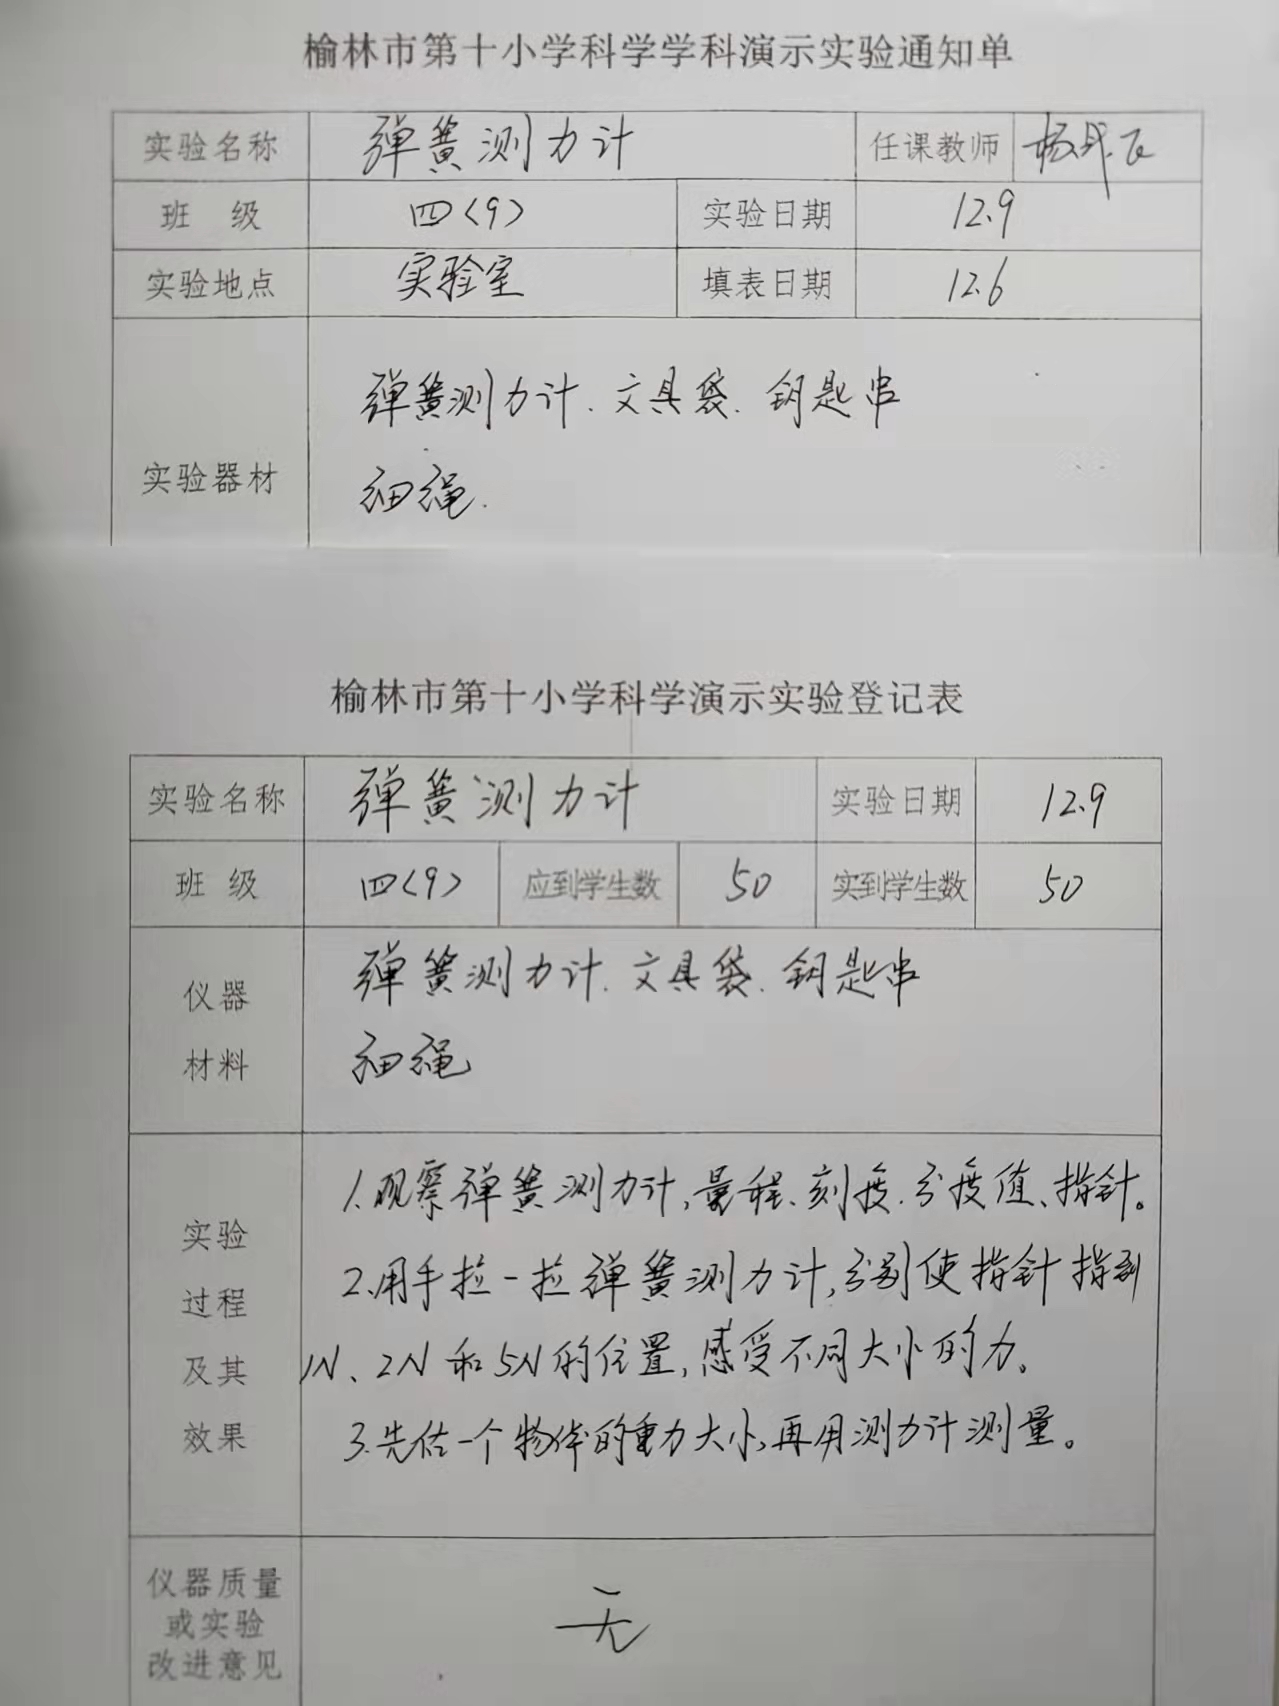 榆林市第十小学科学学科演示实验通知单
实验名称 弹簧测力计 任课教师
班 级 四(9) 实验日期 12.9
实验地点 实验室 填表日期 12.6
实验器材
弹簧测力计、文具袋、钥匙串
细绳.
榆林市第十小学科学演示实验登记表
实验名称 弹簧测力计 实验日期 12.9
班 级 四(9) 应到学生数 50 实到学生数 50
仪器
材料
弹簧测力计、文具袋、钥匙串
细绳
实验
过程
及其
效果
1.观察弹簧测力计,量程、刻度、分度值、指针。
2.用手拉一拉弹簧测力计,分别使指针指到
1N、2N和5N的位置,感受不同大小的力。
3.先估一个物体的重力大小,再用测力计测量。
仪器质量
或实验
改进意见
无